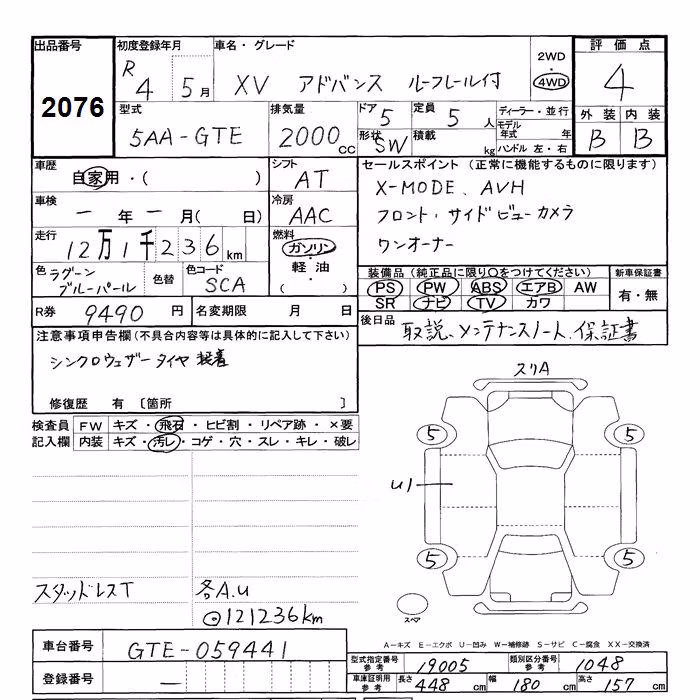 出品番号 初度登録年月 車名・グレード 評価点
2076 R4 5月 XV アドバンス ルーフレール付 2WD・4WD 4
外装 内装
B B
型式 排気量 ドア 5 定員 5人 ディーラー・並行
5AA-GTE 2000cc 形状 SW 積載 kg モデル年式 年
ハンドル 左・右
車歴 自家用・( ) シフト AT
セールスポイント (正常に機能するものに限ります)
X-MODE、AVH
フロント・サイドビューカメラ
ワンオーナー
車検 一年一月( 日) 冷房 AAC
走行 12万1千236km 燃料 ガソリン・軽油・( )
色 ラグーンブルーパール 色替 色コード SCA
装備品(純正品に限り○をつけてください) 新車保証書
PS PW ABS エアB AW 有・無
SR ナビ TV カワ
R券 9490円 名変期限 月 日
後日品 取説、メンテナンスノート、保証書
注意事項申告欄(不具合内容等は具体的に記入して下さい)
シンクロウェザータイヤ装着
修復歴 有〔箇所 〕
検査員記入欄 FW キズ・飛石・ヒビ割・リペア跡・×要
内装 キズ・汚レ・コゲ・穴・スレ・キレ・破レ
スリA
5 5
U1
5 5
スペア
スタッドレスT 各A.U
⊙121236km
A-キズ E-エクボ U-凹み W-補修跡 S-サビ C-腐食 XX-交換済
車台番号 GTE-059441
登録番号 一
型式指定番号 参考 19005 類別区分番号 参考 1048
車庫証明用 参考 長さ 448cm 幅 180cm 高さ 157cm